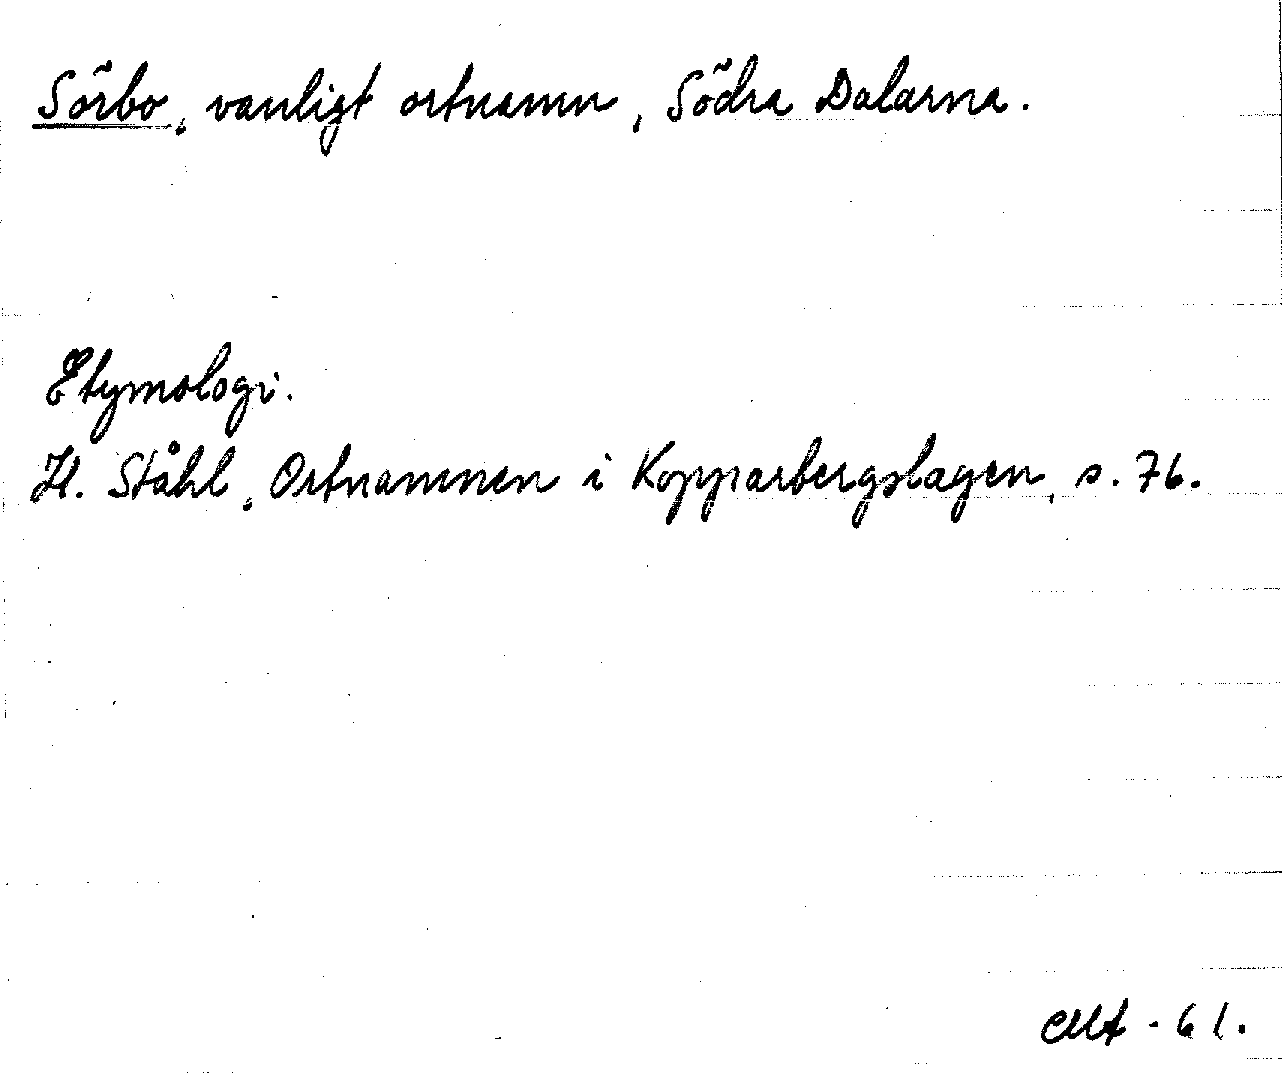 Sörbo, vanligt ortnamn, Södra Dalarna.
Etymologi.
H. Ståhl, Ortnamnen i Kopparbergslagen, s. 76.
- 61.